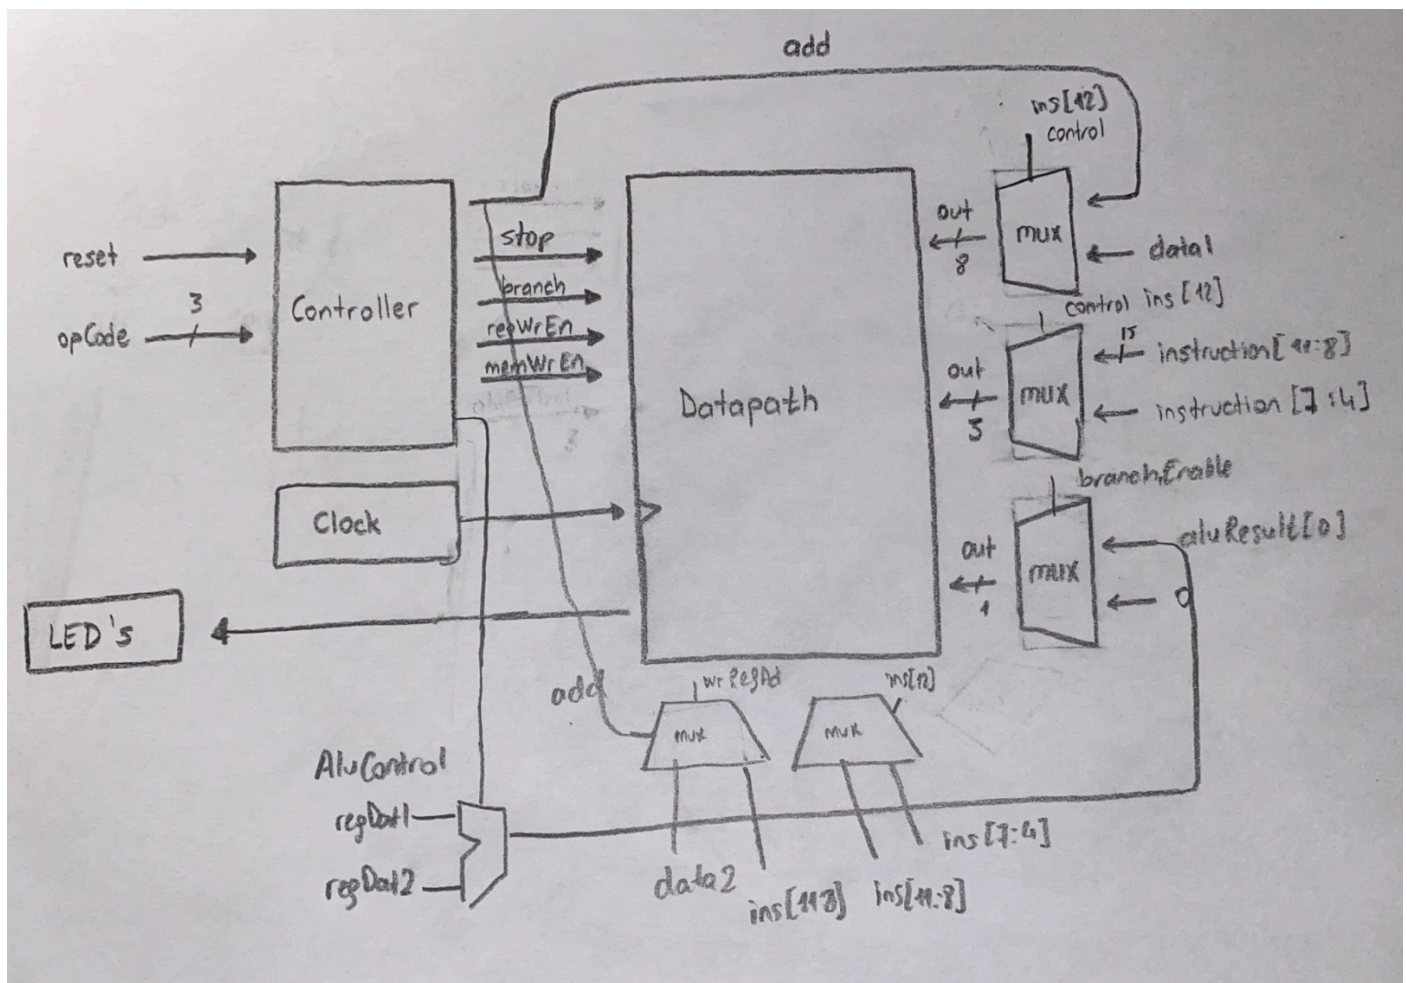 add
ins[12]
control
reset
3
opCode
Controller
stop
branch
regWrEn
memWrEn
Datapath
out
8
mux
data1
control ins [12]
out
3
mux
15
instruction[11:8]
instruction [7:4]
Clock
branchEnable
out
1
mux
aluResult[0]
0
LED's
add
wrRegAd
mux
ins[12]
mux
AluControl
regDat1
regDat2
data2
ins[11:8]
ins[11:8]
ins[7:4]